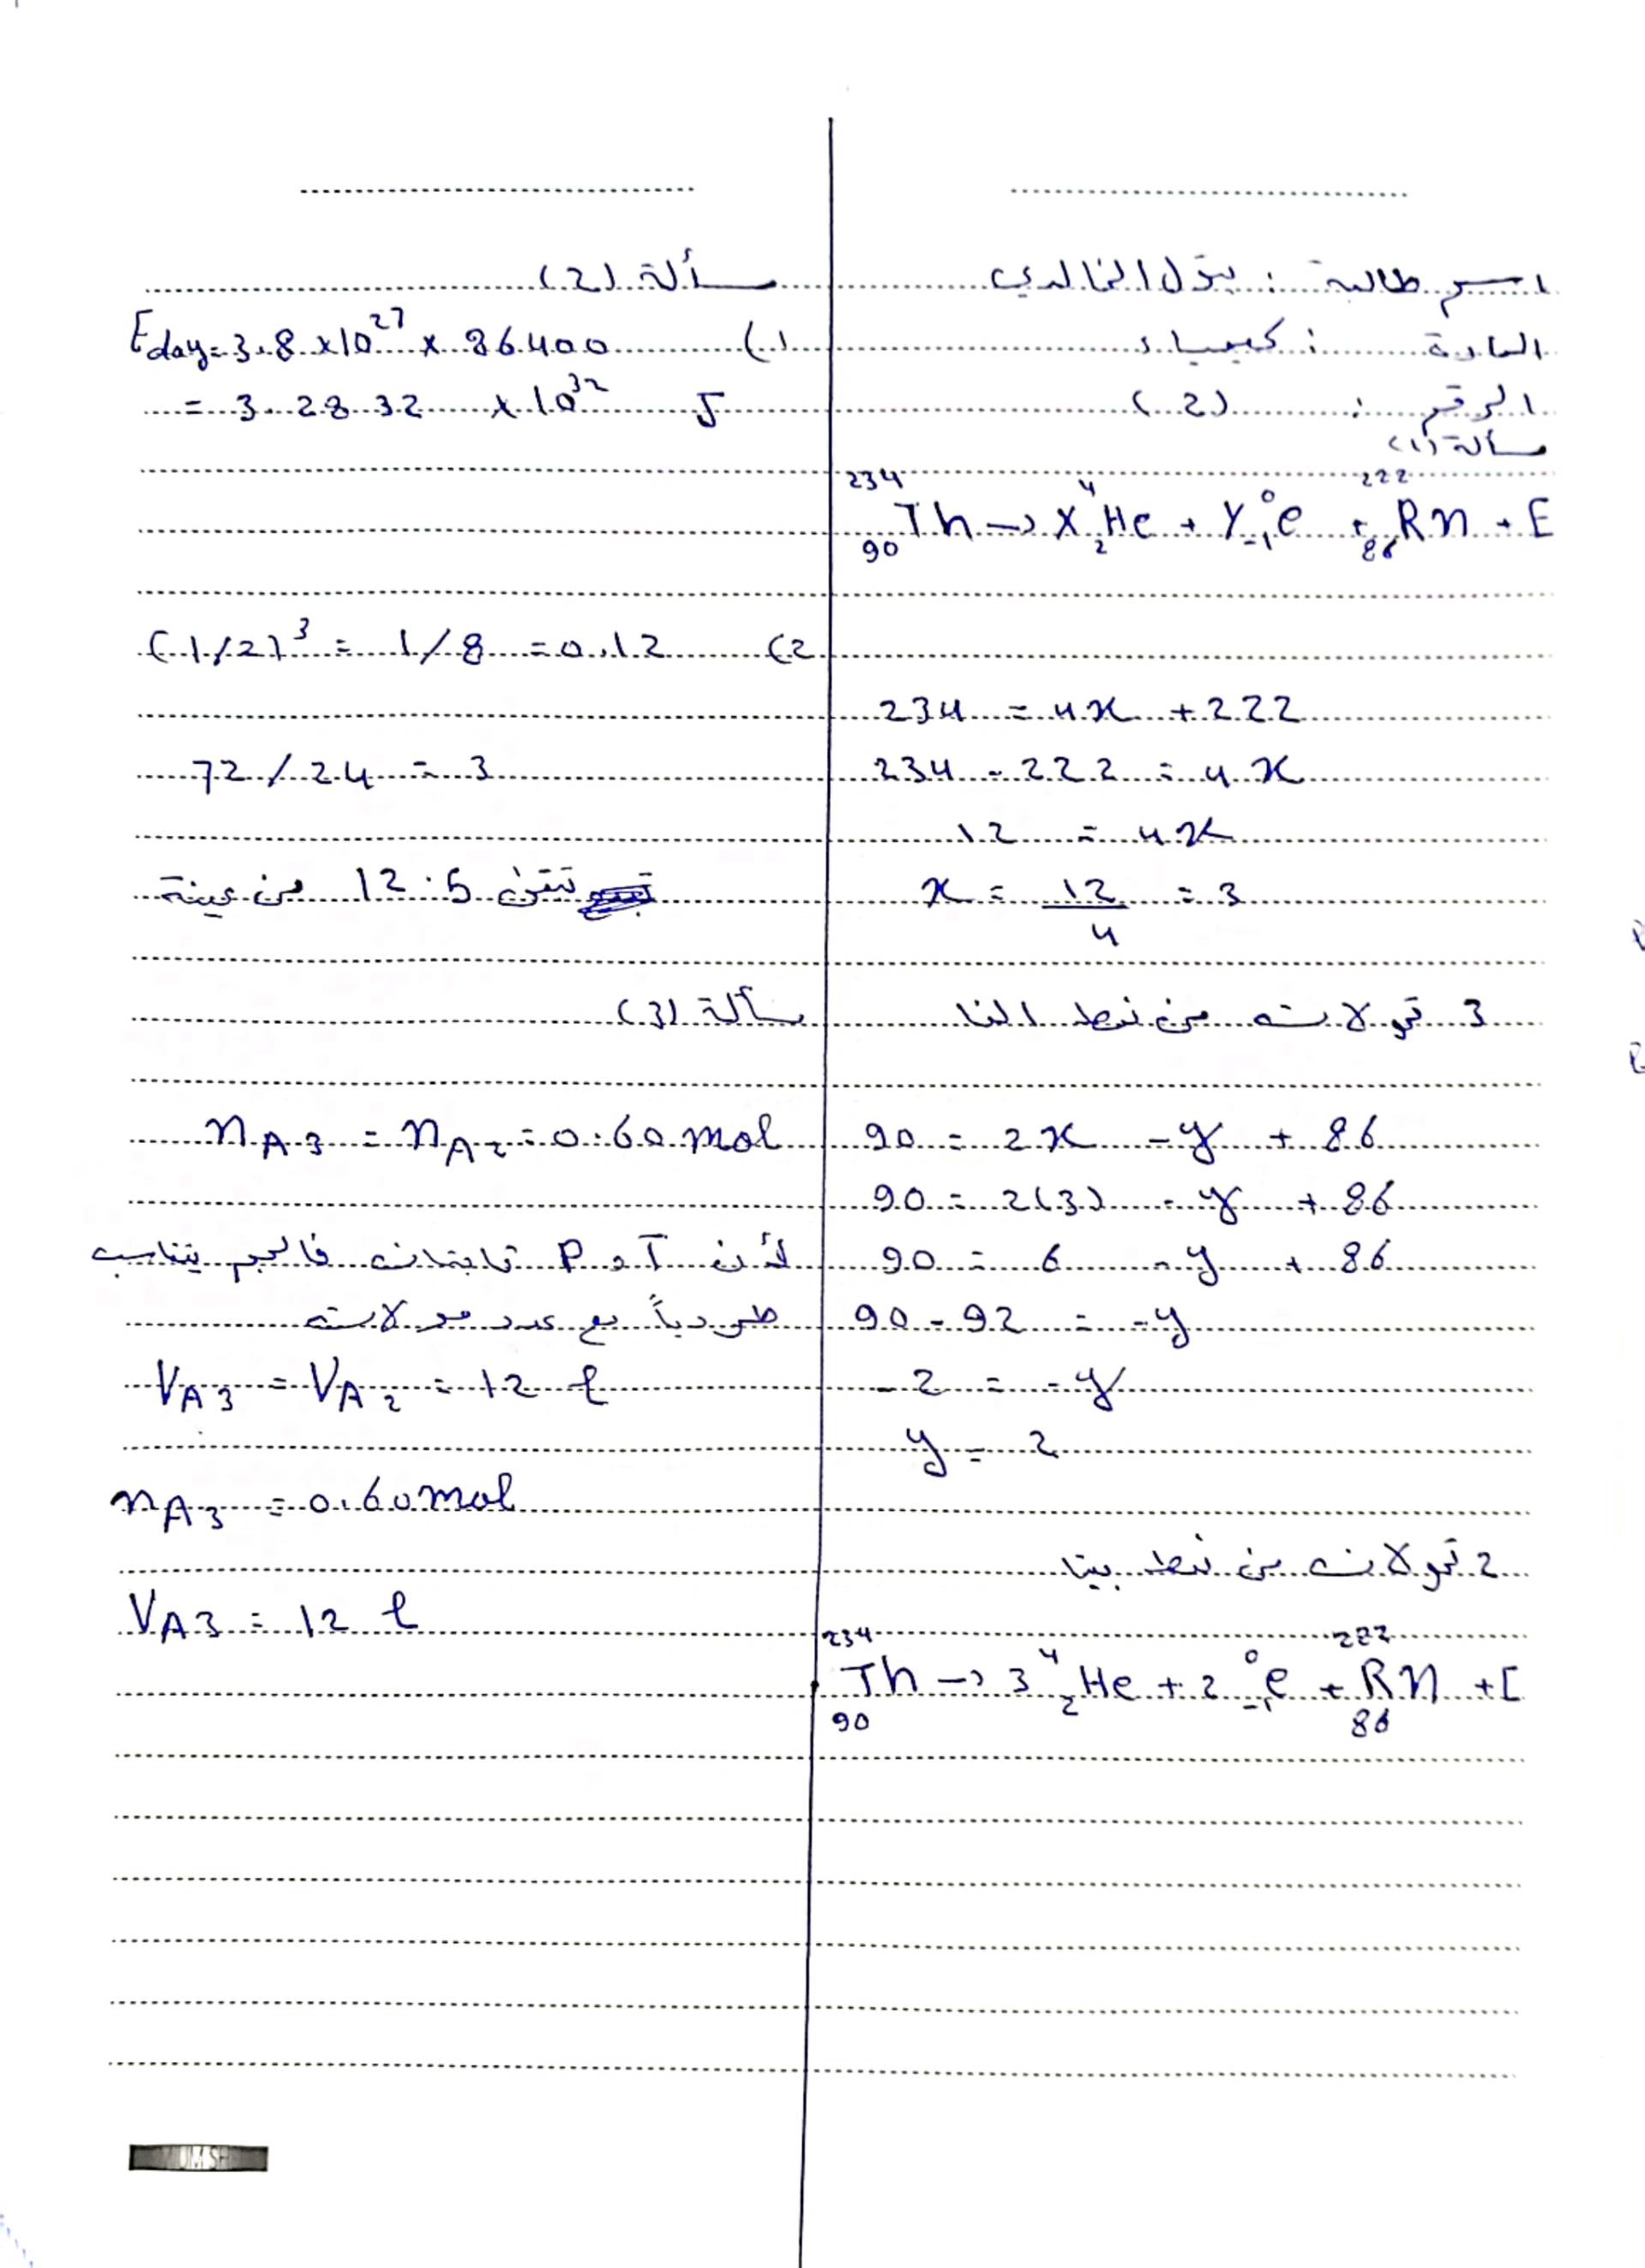 اسم طالبة : بتول الخالدي
المادة : كيمياء
الرقم : (2)
مسألة (1)
²³⁴₉₀Th → X ⁴₂He + Y ⁰₋₁e + ²²²₈₆Rn + E
234 = 4x + 222
234 - 222 = 4x
12 = 4x
x = 12/4 = 3
3 تحولات من نمط الفا
90 = 2x - y + 86
90 = 2(3) - y + 86
90 = 6 - y + 86
90 - 92 = -y
-2 = -y
y = 2
2 تحولات من نمط بيتا
²³⁴₉₀Th → 3 ⁴₂He + 2 ⁰₋₁e + ²²²₈₆Rn + E
مسألة (2)
1) Eday = 3.8 x 10²⁷ x 86400
= 3.2832 x 10³² J
2) (1/2)³ = 1/8 = 0.12
72 / 24 = 3
تتبقى 12.5 من عينة
مسألة (3)
nA3 = nA2 = 0.60 mol
لأن T و P ثابتان فالحجم يتناسب
طردياً مع عدد مولات
VA3 = VA2 = 12 ℓ
nA3 = 0.60 mol
VA3 = 12 ℓ